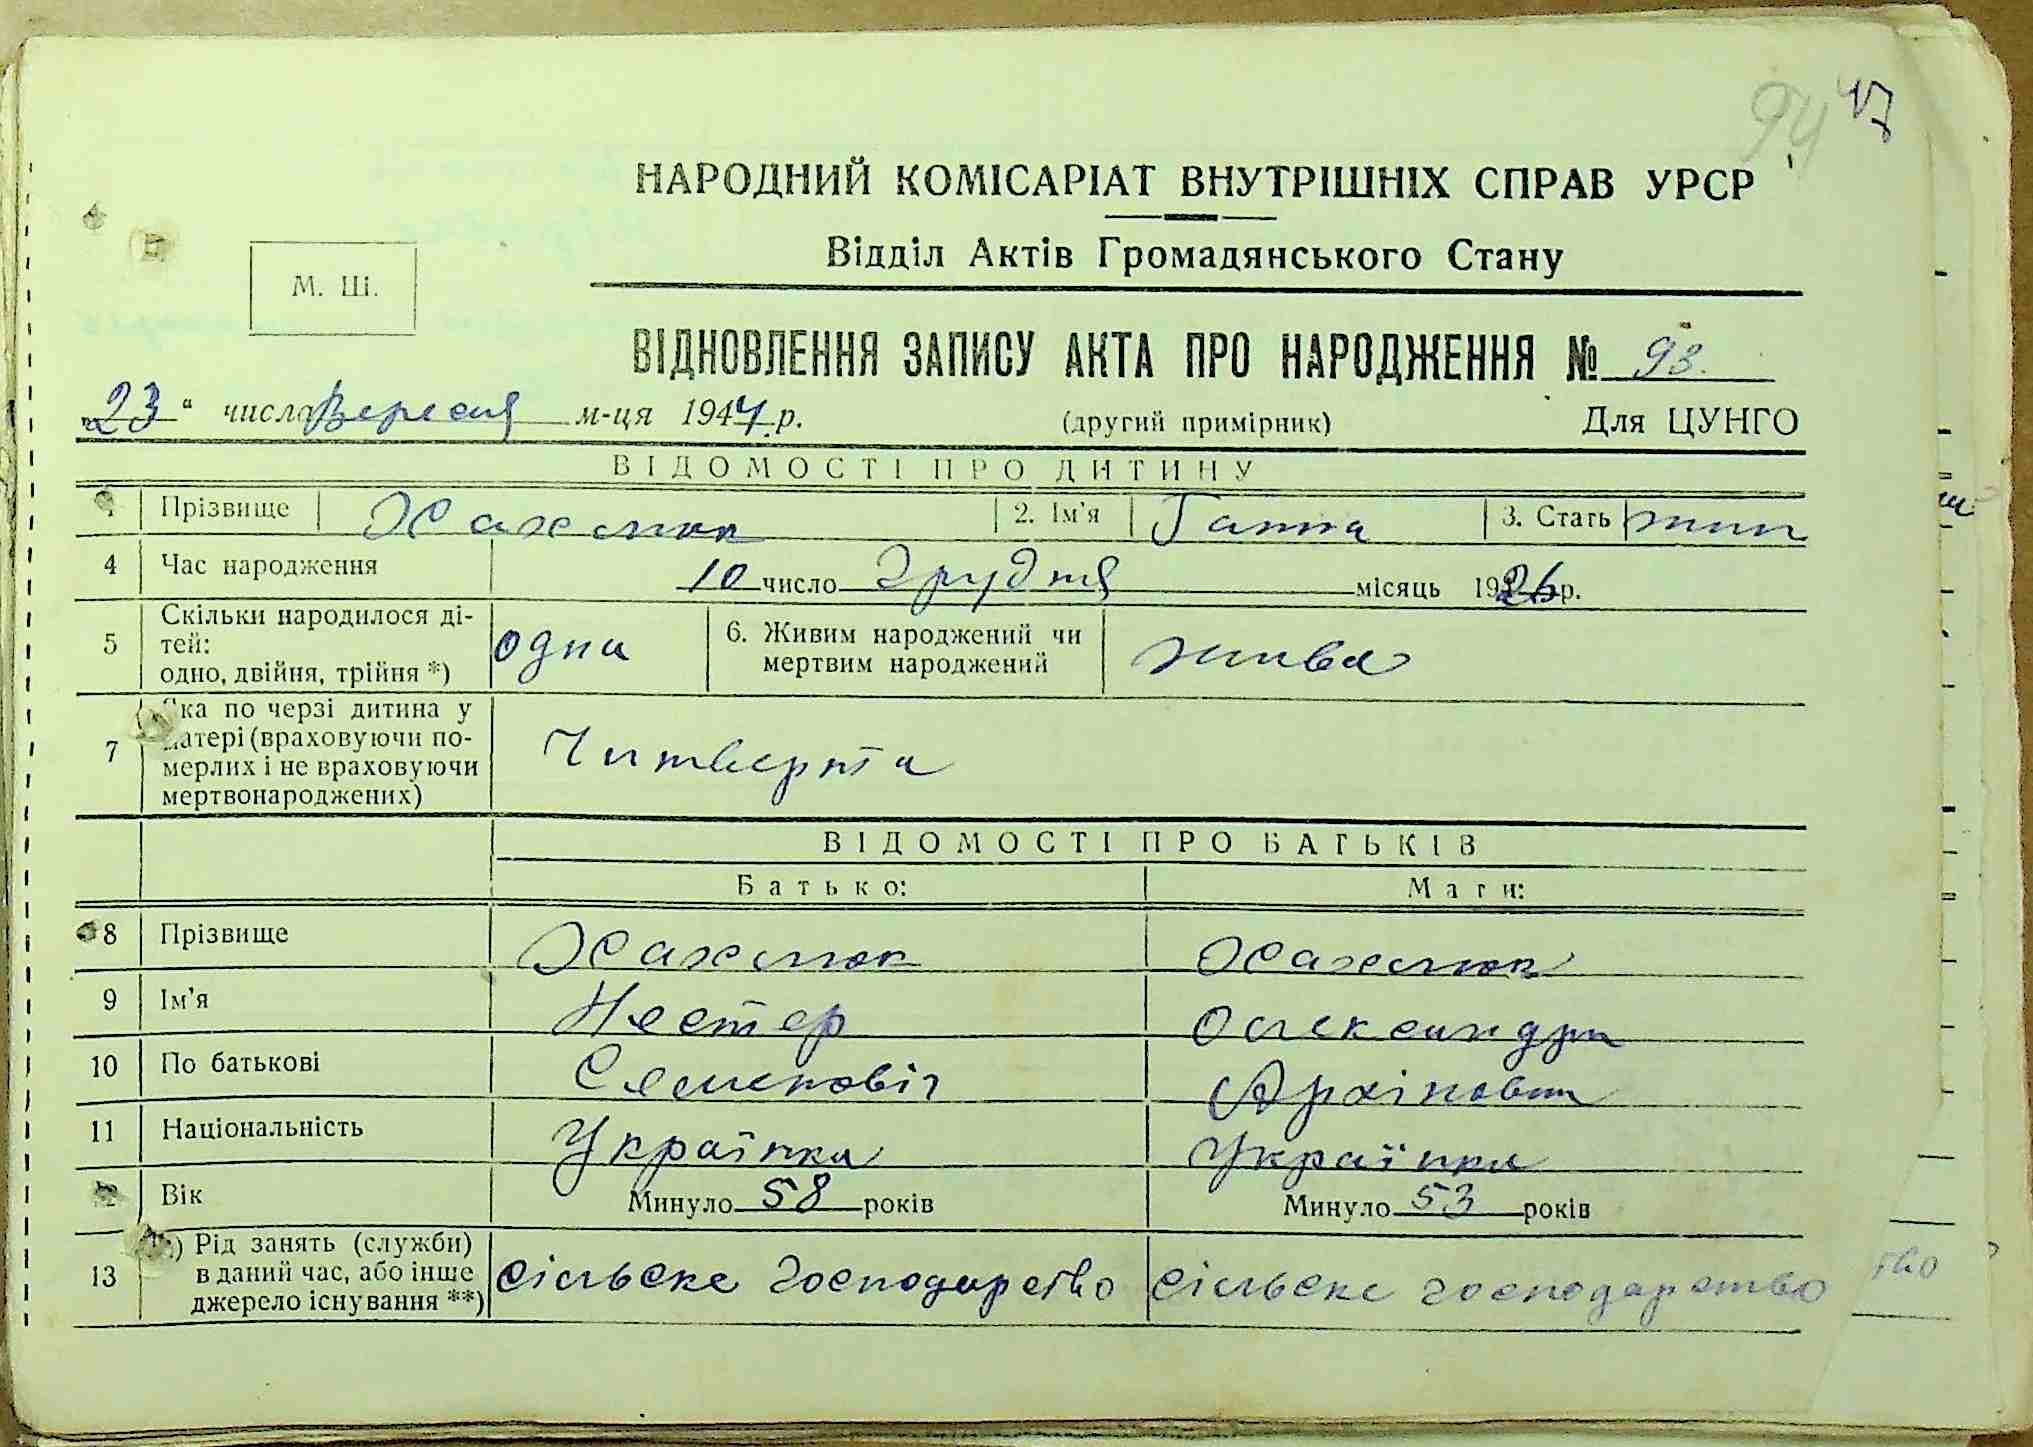 94 47
НАРОДНИЙ КОМІСАРІАТ ВНУТРІШНІХ СПРАВ УРСР
Відділ Актів Громадянського Стану
М. Ш.
ВІДНОВЛЕННЯ ЗАПИСУ АКТА ПРО НАРОДЖЕННЯ № 93.
„23“ числа Вересня м-ця 1944 р. (другий примірник) Для ЦУНГО
ВІДОМОСТІ ПРО ДИТИНУ
1 Прізвище Хахлюк 2. Ім'я Ганна 3. Стать жін
4 Час народження 10 число Грудня місяць 1926 р.
5 Скільки народилося ді-
тей:
одно, двійня, трійня *) одна 6. Живим народжений чи
мертвим народжений жива
7 Яка по черзі дитина у
матері (враховуючи по-
мерлих і не враховуючи
мертвонароджених) Читверта
ВІДОМОСТІ ПРО БАТЬКІВ
Батько: Мати:
8 Прізвище Хахлюк Хахлюк
9 Ім'я Нестер Олександра
10 По батькові Семеновіч Архіповна
11 Національність Українка Українка
12 Вік Минуло 58 років Минуло 53 років
13 ) Рід занять (служби)
в даний час, або інше
джерело існування **) сільске господарство сільске господарство
тво